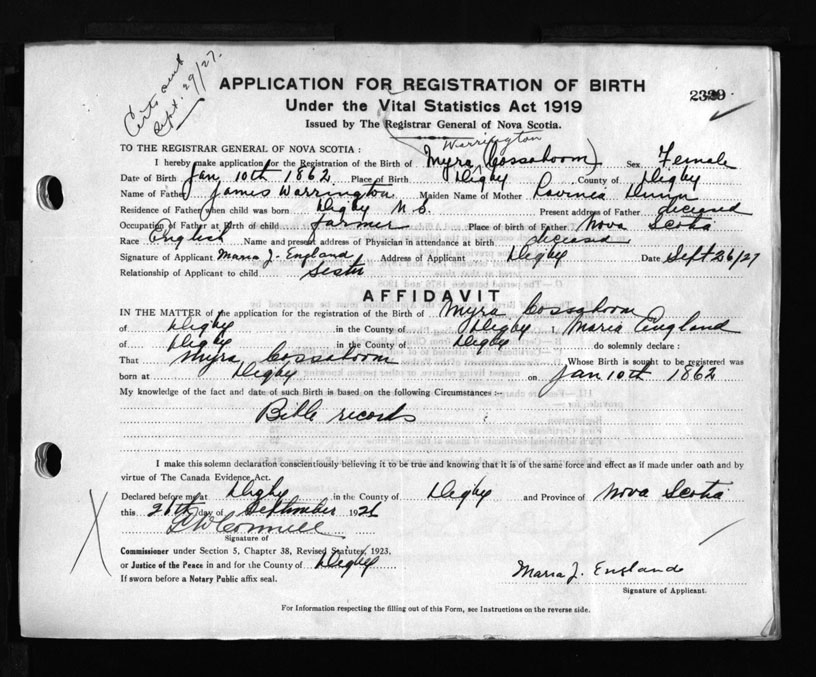 Certs sent
Sept. 29/27.
APPLICATION FOR REGISTRATION OF BIRTH
2329
Under the Vital Statistics Act 1919
Issued by The Registrar General of Nova Scotia.
Warrington
TO THE REGISTRAR GENERAL OF NOVA SCOTIA :
I hereby make application for the Registration of the Birth of Myra (Cossaboom) Sex Female
Date of Birth Jan 10th 1862 Place of Birth Digby County of Digby
Name of Father James Warrington Maiden Name of Mother Lavinea Dunn
Residence of Father when child was born Digby N.S. Present address of Father deceased
Occupation of Father at Birth of child farmer Place of birth of Father Nova Scotia
Race English Name and present address of Physician in attendance at birth deceased
Signature of Applicant Maria J. England Address of Applicant Digby Date Sept 26/27
Relationship of Applicant to child Sister
AFFIDAVIT
IN THE MATTER of the application for the registration of the Birth of Myra Cossaboom
of Digby in the County of Digby I, Maria England
of Digby in the County of Digby do solemnly declare :
That Myra Cossaboom Whose Birth is sought to be registered was
born at Digby on Jan 10th 1862
My knowledge of the fact and date of such Birth is based on the following Circumstances :-
Bible records
I make this solemn declaration conscientiously believing it to be true and knowing that it is of the same force and effect as if made under oath and by
virtue of The Canada Evidence Act.
Declared before me at Digby in the County of Digby and Province of Nova Scotia
this 26th day of September 192
Signature of
Commissioner under Section 5, Chapter 38, Revised Statutes, 1923,
or Justice of the Peace in and for the County of Digby
If sworn before a Notary Public affix seal.
Maria J. England
Signature of Applicant.
For Information respecting the filling out of this Form, see Instructions on the reverse side.